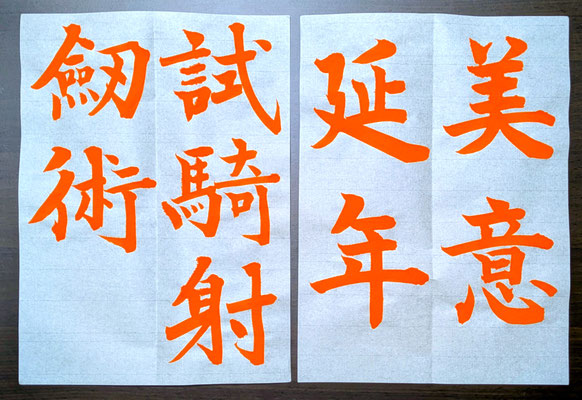 美意
延年
試騎射
劒術